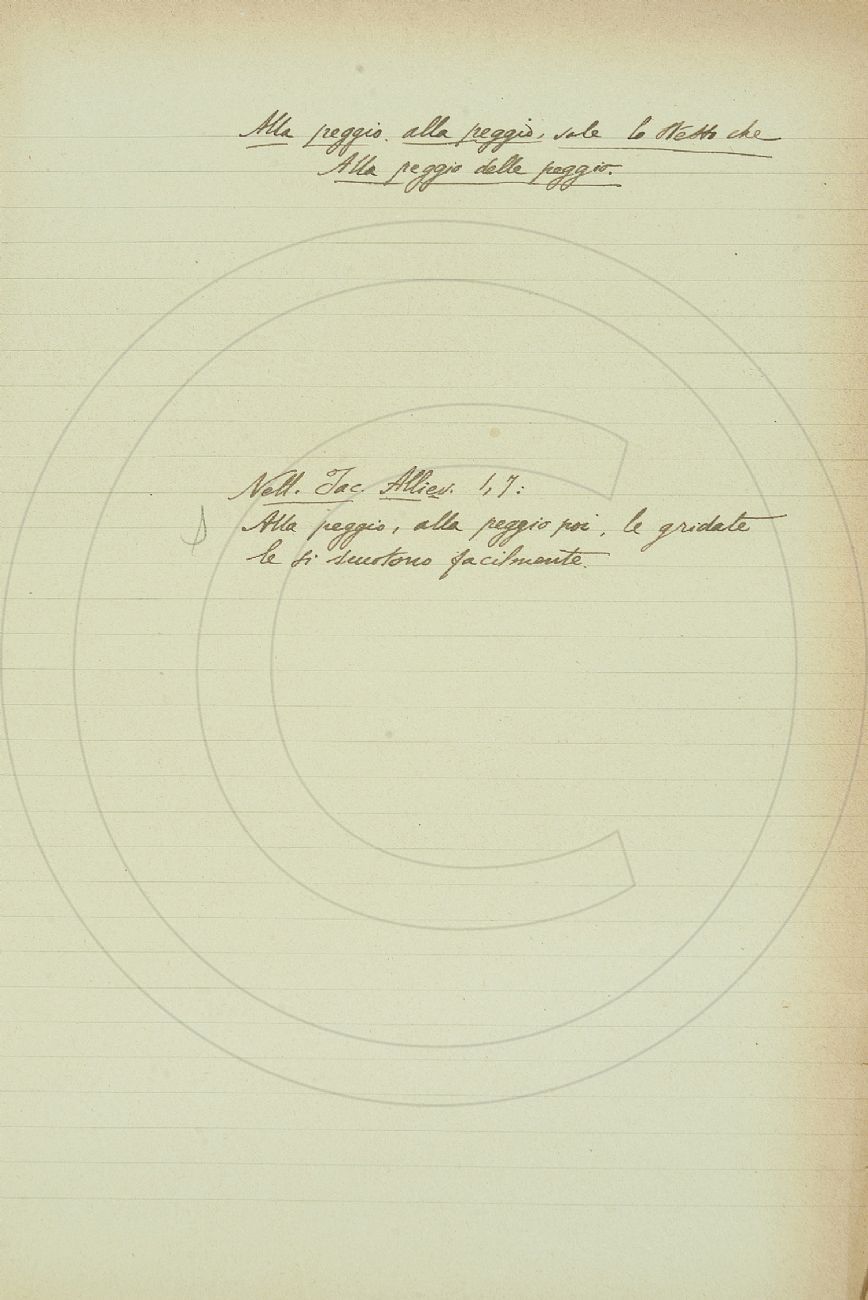 Alla peggio, alla peggio, vale lo stesso che
Alla peggio delle peggio.
Nell. Jac. Alliev. 1, 7:
Alla peggio, alla peggio poi, le gridate
le si scuotono facilmente.